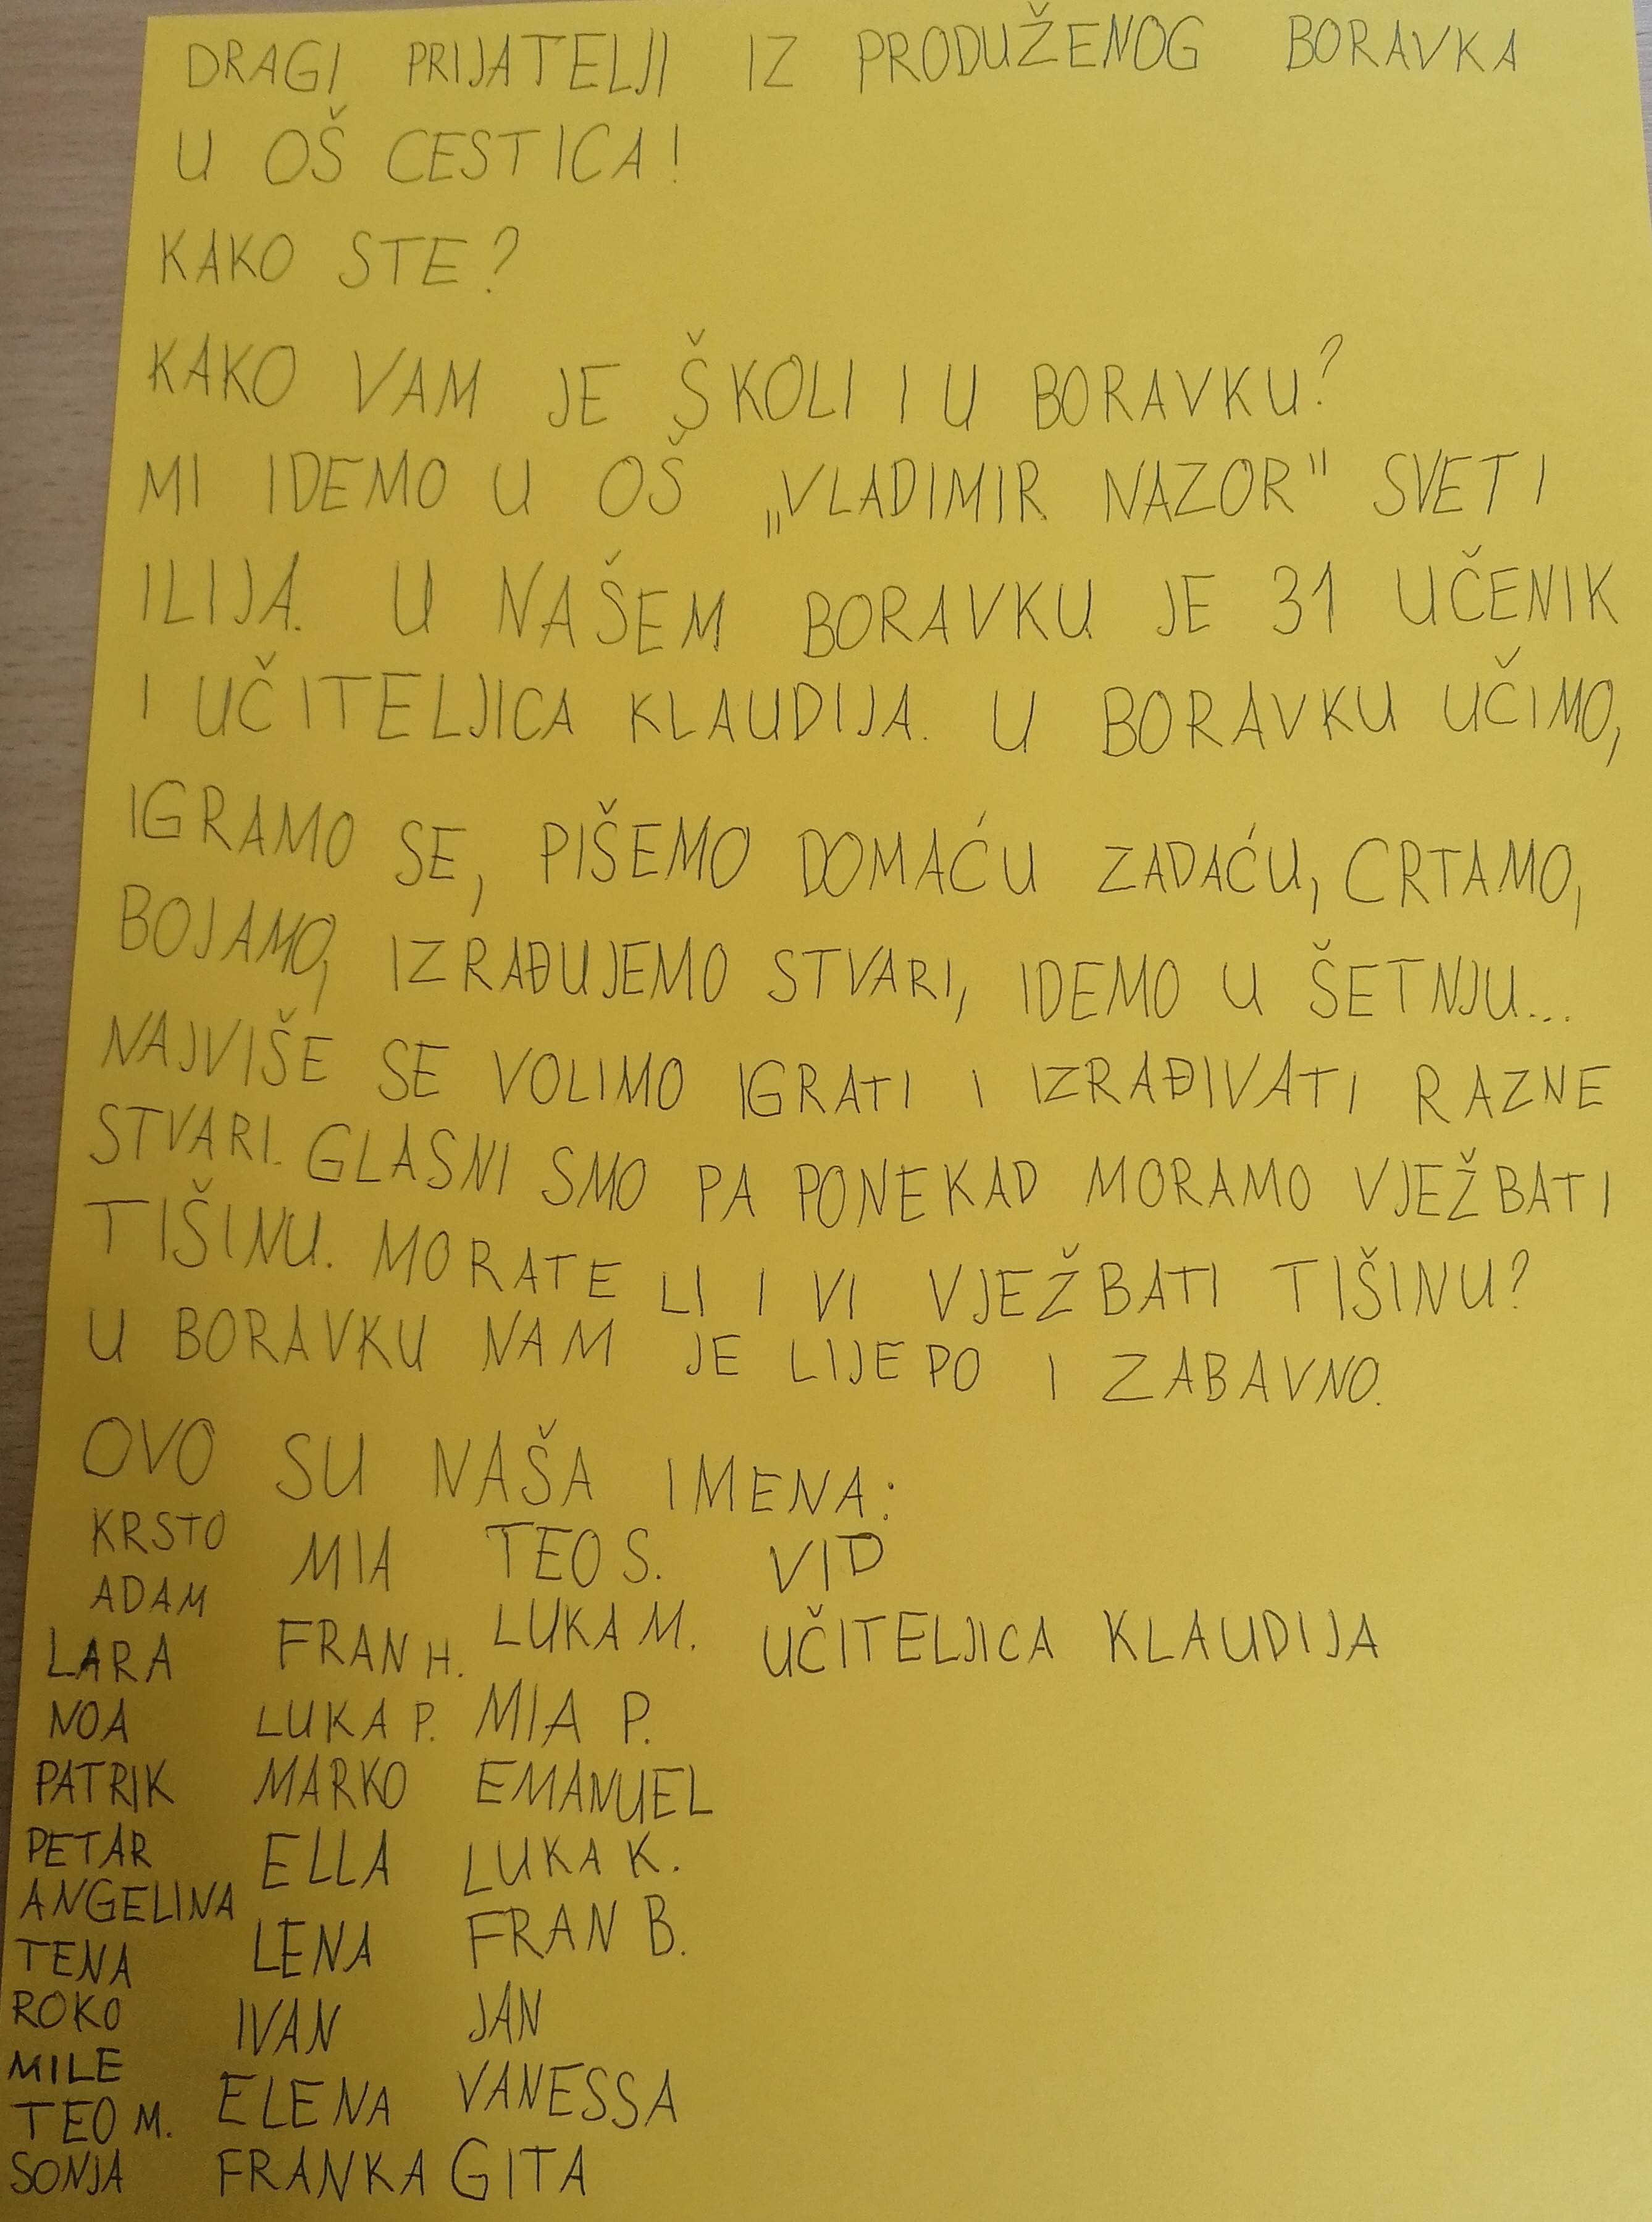 DRAGI PRIJATELJI IZ PRODUŽENOG BORAVKA
U OŠ CESTICA!
KAKO STE?
KAKO VAM JE ŠKOLI I U BORAVKU?
MI IDEMO U OŠ „VLADIMIR NAZOR" SVETI
ILIJA. U NAŠEM BORAVKU JE 31 UČENIK
I UČITELJICA KLAUDIJA. U BORAVKU UČIMO,
IGRAMO SE, PIŠEMO DOMAĆU ZADAĆU, CRTAMO,
BOJAMO, IZRAĐUJEMO STVARI, IDEMO U ŠETNJU...
NAJVIŠE SE VOLIMO IGRATI I IZRAĐIVATI RAZNE
STVARI. GLASNI SMO PA PONEKAD MORAMO VJEŽBATI
TIŠINU. MORATE LI I VI VJEŽBATI TIŠINU?
U BORAVKU NAM JE LIJEPO I ZABAVNO.
OVO SU NAŠA IMENA:
KRSTO
ADAM
LARA
NOA
PATRIK
PETAR
ANGELINA
TENA
ROKO
MILE
TEO M.
SONJA
MIA
FRAN H.
LUKA P.
MARKO
ELLA
LENA
IVAN
ELENA
FRANKA
TEO S.
LUKA M.
MIA P.
EMANUEL
LUKA K.
FRAN B.
JAN
VANESSA
GITA
VID
UČITELJICA KLAUDIJA